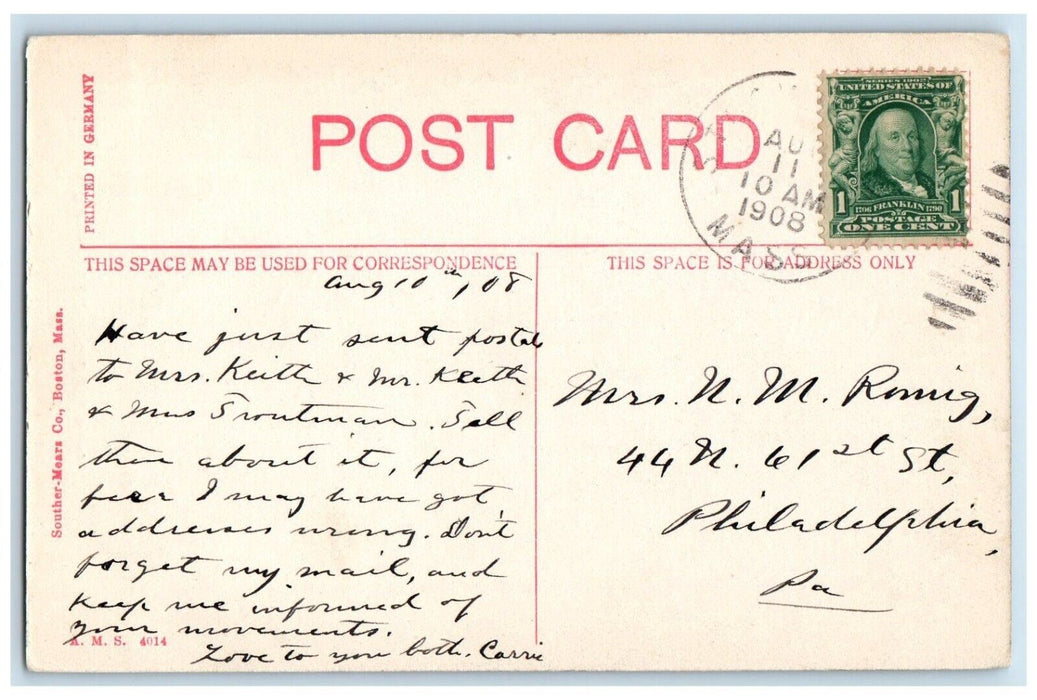 PRINTED IN GERMANY
POST CARD
AU
11
10 AM
1908
MASS
SERIES 1902
UNITED STATES OF
AMERICA
1 1
1706 FRANKLIN 1790
POSTAGE
ONE CENT
THIS SPACE MAY BE USED FOR CORRESPONDENCE
THIS SPACE IS FOR ADDRESS ONLY
Aug 10th, 08
Have just sent postals
to Mrs. Keith & Mr. Keith
& Mrs Troutman. Tell
them about it, for
fear I may have got
addresses wrong. Don't
forget my mail, and
keep me informed of
your movements.
Love to you both. Carrie
Mrs. N. M. Romig,
44 N. 61st St,
Philadelphia,
Pa
Souther-Mears Co., Boston, Mass.
A. M. S. 4014